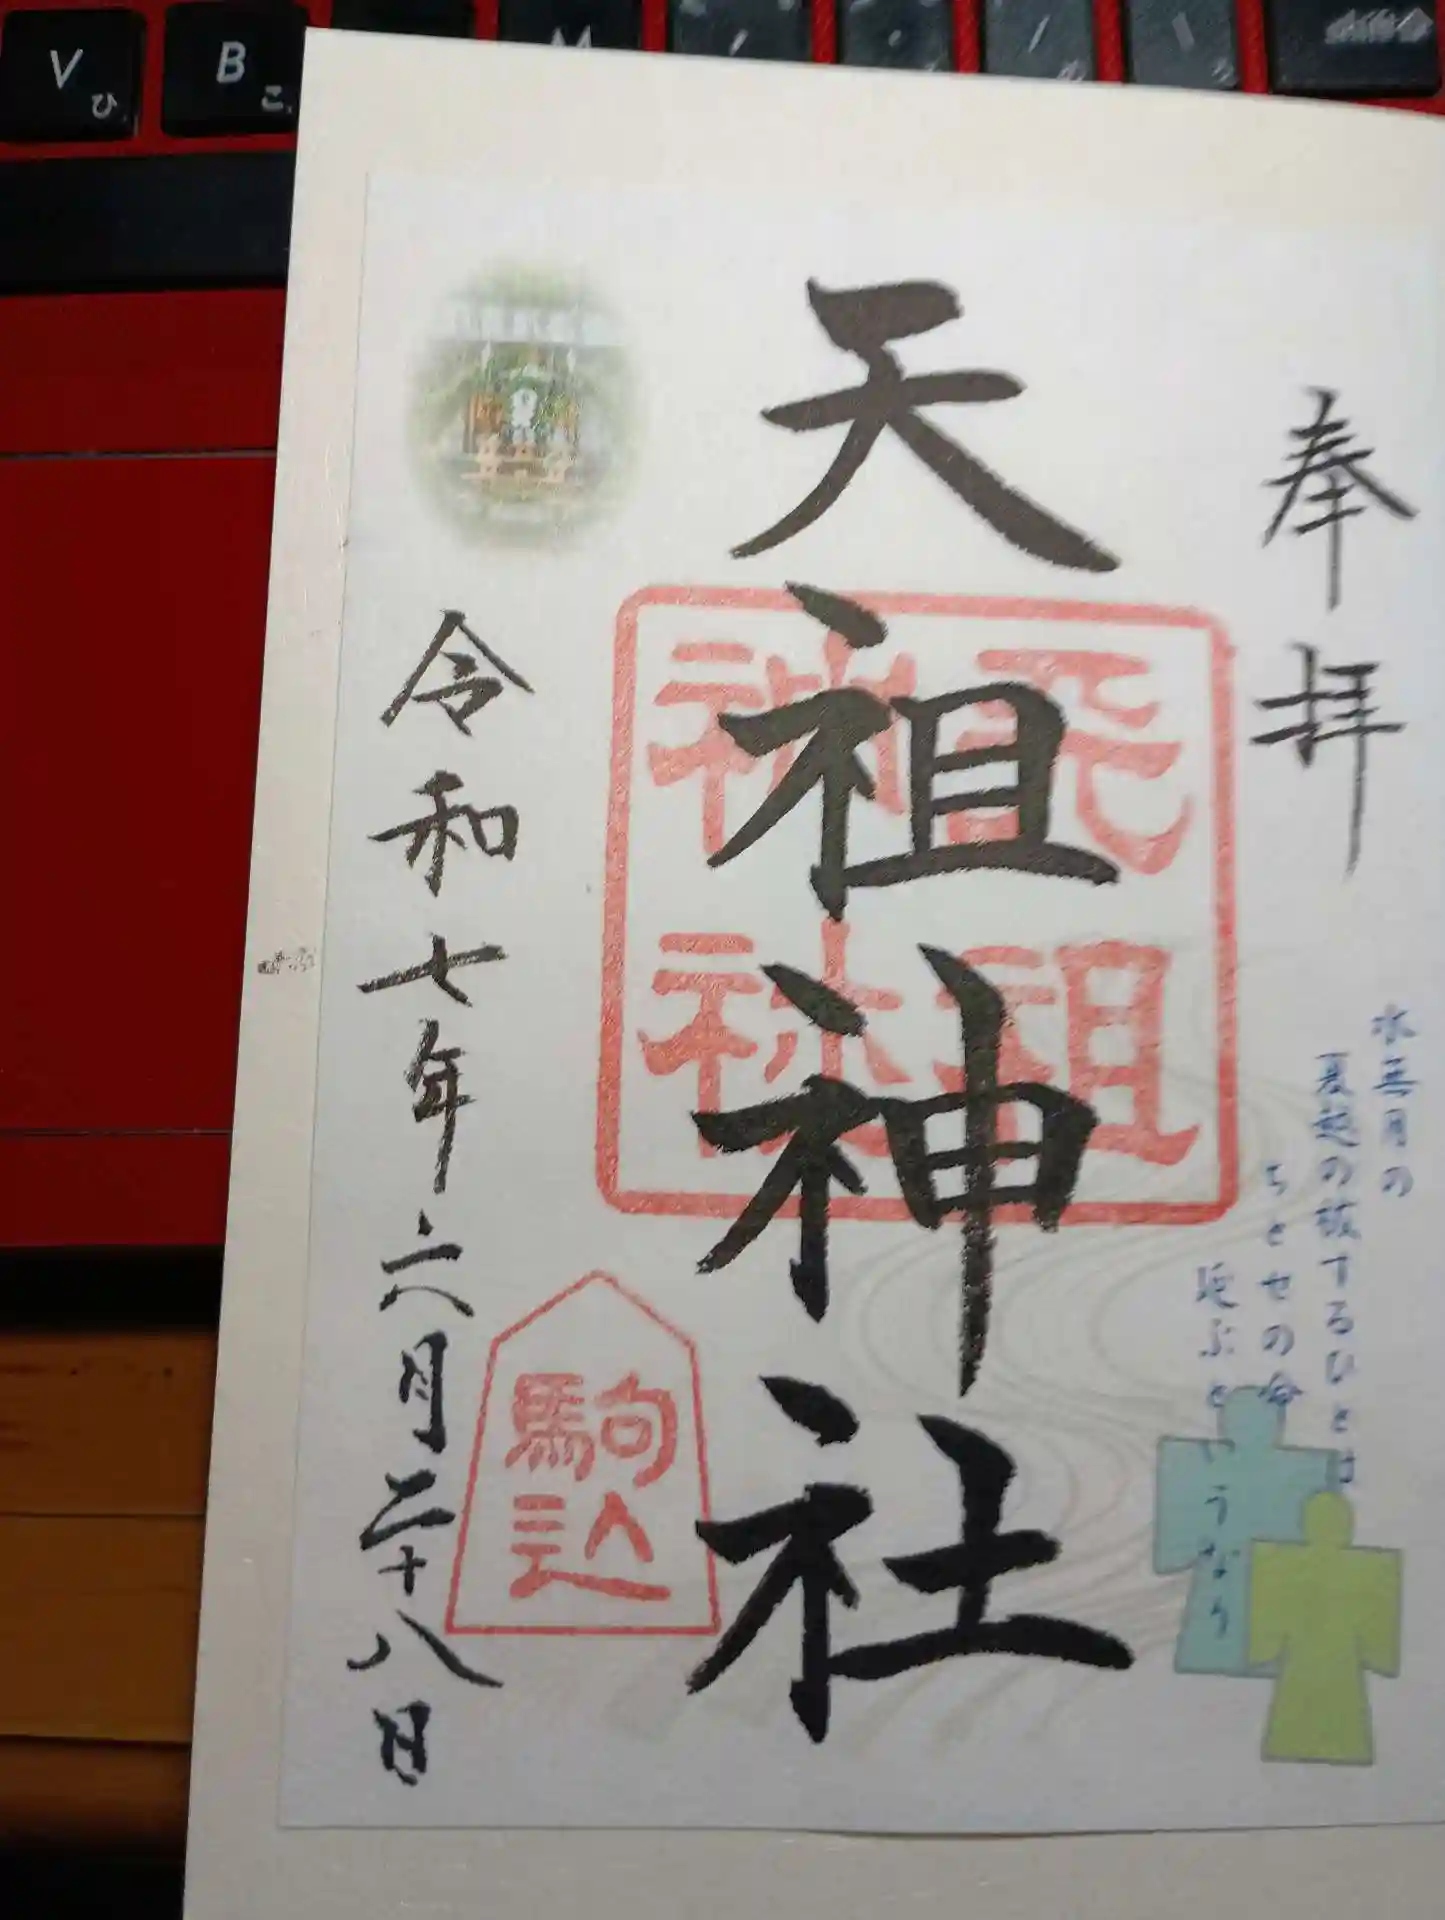 V
ひ
B
こ
M
奉拝
水無月の
夏越の祓するひとは
ちとせの命
延ぶというなり
天祖神社
天祖
神社
駒込
令和七年六月二十八日